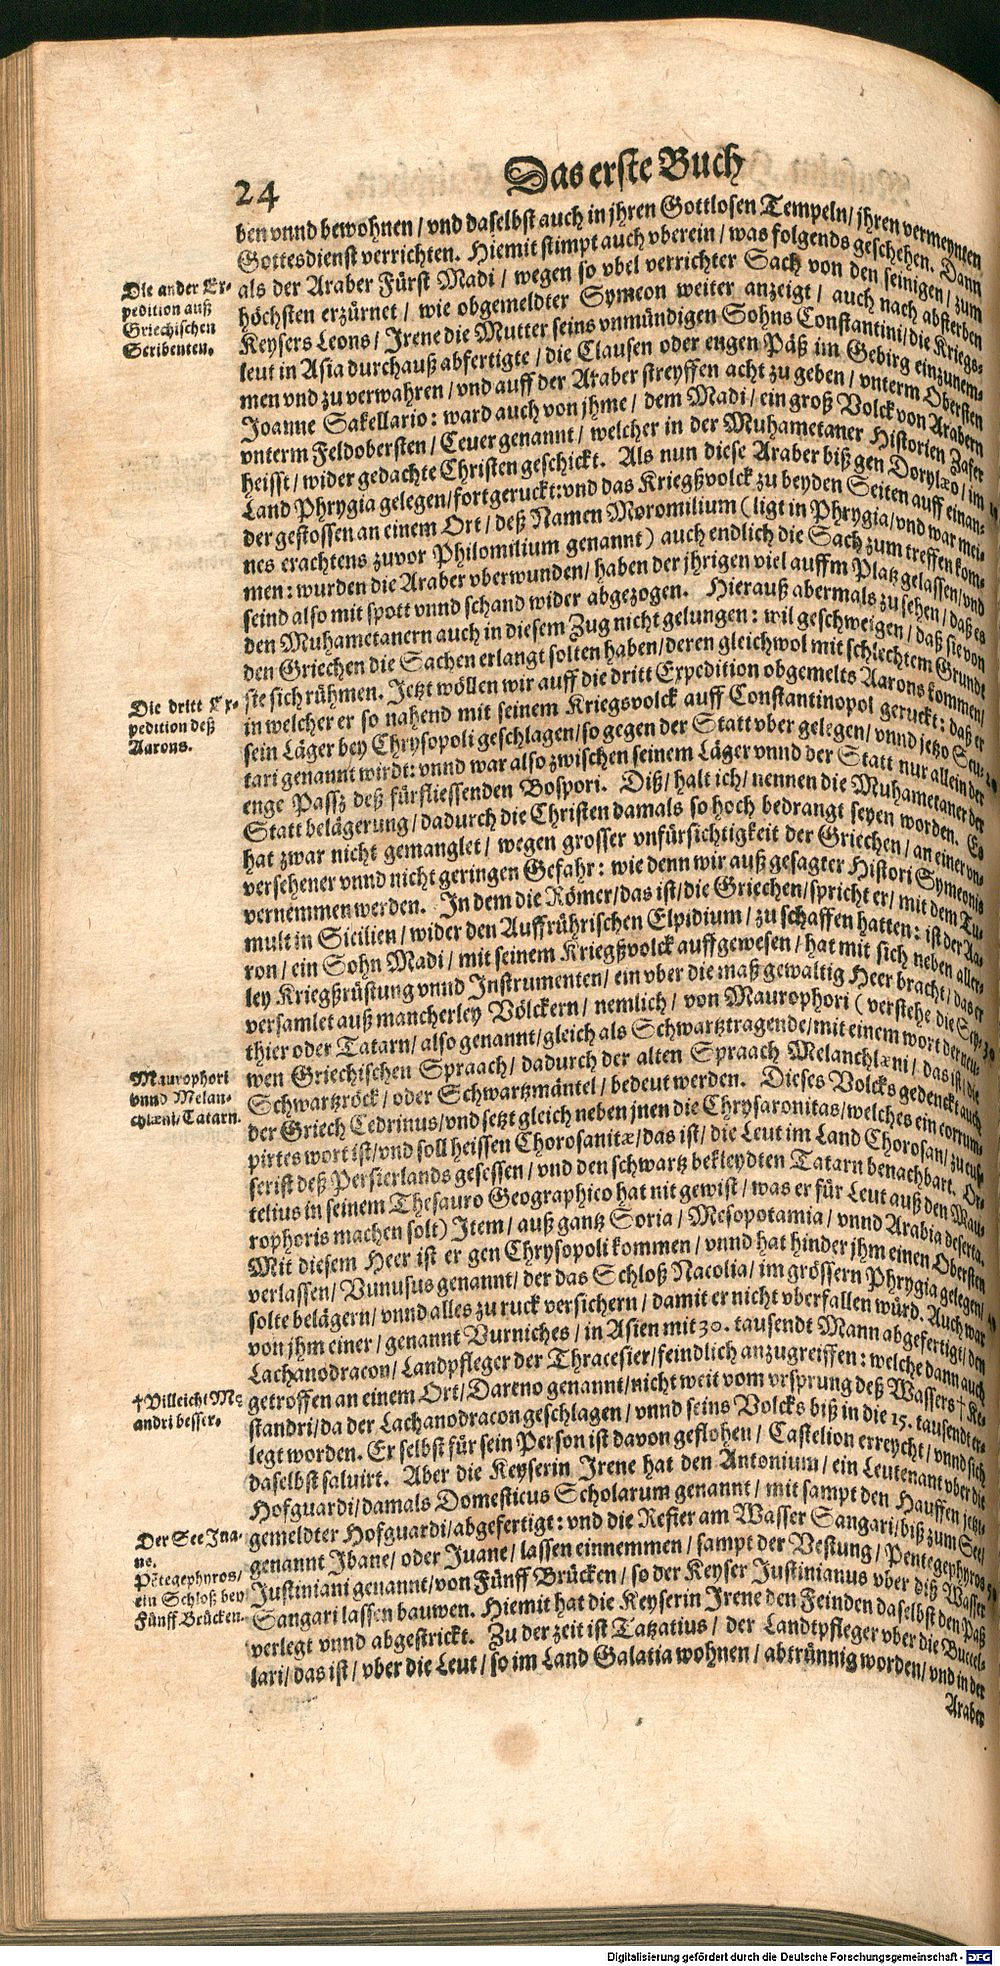 24
Das erste Buch
ben vnnd bewohnen / vnd daselbst auch in jhren Gottlosen Tempeln / jhren vermeynten
Gottesdienst verrichten. Hiemit stimpt auch vberein / was folgends geschehen. Dann
als der Araber Fürst Madi / wegen so vbel verrichter Sach von den seinigen / zum
höchsten erzürnet / wie obgemeldter Symeon weiter anzeigt / auch nach absterben
Keysers Leons / Irene die Mutter seins vnmündigen Sohns Constantini / die Kriegs-
leut in Asia durchauß abfertigte / die Clausen oder engen Päß im Gebirg einzunem-
men vnd zu verwahren / vnd auff der Araber streyffen acht zu geben / vnterm Obersten
Joanne Sakellario: ward auch von jhme / dem Madi / ein groß Volck von Arabern
vnterm Feldobersten / Ceuer genannt / welcher in der Muhametaner Historien Zafer
heisst / wider gedachte Christen geschickt. Als nun diese Araber biß gen Dorylæo / im
Land Phrygia gelegen / fortgeruckt: vnd das Kriegßvolck zu beyden Seiten auff einan-
der gestossen an einem Ort / deß Namen Moromilium (ligt in Phrygia / vnd war mei-
nes erachtens zuvor Philomilium genannt) auch endlich die Sach zum treffen kom-
men: wurden die Araber vberwunden / haben der jhrigen viel auffm Platz gelassen / vnd
seind also mit spott vnnd schand wider abgezogen. Hierauß abermals zu sehen / daß es
den Muhametanern auch in diesem Zug nicht gelungen: wil geschweigen / daß sie von
den Griechen die Sachen erlangt solten haben / deren gleichwol mit schlechtem Grundt
sie sich rühmen. Jetzt wöllen wir auff die dritt Expedition obgemelts Aarons kommen /
in welcher er so nahend mit seinem Kriegsvolck auff Constantinopol geruckt: daß er
sein Läger bey Chrysopoli geschlagen / so gegen der Statt vber gelegen / vnnd jetzo Scu-
tari genannt wirdt: vnnd war also zwischen seinem Läger vnnd der Statt nur allein der
enge Passz deß fürfliessenden Bospori. Diß / halt ich / nennen die Muhametaner der
Statt belägerung / dadurch die Christen damals so hoch bedrangt seyen worden. Es
hat zwar nicht gemanglet / wegen grosser vnfürsichtigkeit der Griechen / an einer vn-
versehener vnnd nicht geringen Gefahr: wie denn wir auß gesagter Histori Symeonis
vernemmen werden. In dem die Römer / das ist / die Griechen / spricht er / mit dem Tu-
mult in Sicilien / wider den Auffrührischen Elpidium / zu schaffen hatten: ist der Aa-
ron / ein Sohn Madi / mit seinem Kriegßvolck auffgewesen / hat mit sich neben aller-
ley Kriegßrüstung vnnd Instrumenten / ein vber die maß gewaltig Heer bracht / das er
versamlet auß mancherley Völckern / nemlich / von Maurophori (verstehe die Scy-
thier oder Tatarn / also genannt / gleich als Schwartztragende / mit einem wort der neu-
wen Griechischen Spraach / dadurch der alten Spraach Melanchlæni / das ist / die
Schwartzröck / oder Schwartzmäntel / bedeut werden. Dieses Volcks gedenckt auch
der Griech Cedrinus / vnd setzt gleich neben jnen die Chrysaronitas / welches ein corrum-
pirtes wort ist / vnd soll heissen Chorosanitæ / das ist / die Leut im Land Chorosan / zu eus-
serist deß Persierlands gesessen / vnd den schwartz bekleydten Tatarn benachbart. Or-
telius in seinem Thesauro Geographico hat nit gewist / was er für Leut auß den Mau-
rophoris machen solt) Item / auß gantz Soria / Mesopotamia / vnnd Arabia deserta.
Mit diesem Heer ist er gen Chrysopoli kommen / vnnd hat hinder jhm einen Obersten
verlassen / Vunusus genannt / der das Schloß Nacolia / im grössern Phrygia gelegen /
solte belägern / vnnd alles zu ruck versichern / damit er nicht vberfallen würd. Auch war
von jhm einer / genannt Vurniches / in Asien mit 30. tausendt Mann abgefertigt / den
Lachanodracon / Landpfleger der Thracesier / feindlich anzugreiffen: welche dann auch
getroffen an einem Ort / Dareno genannt / nicht weit vom vrsprung deß Wassers † Ke-
standri / da der Lachanodracon geschlagen / vnnd seins Volcks biß in die 15. tausendt er-
legt worden. Er selbst für sein Person ist davon geflohen / Castelion erreycht / vnnd sich
daselbst salvirt. Aber die Keyserin Irene hat den Antonium / ein Leutenant vber die
Hofguardi / damals Domesticus Scholarum genannt / mit sampt den Hauffen jetzt-
gemeldter Hofguardi / abgefertigt: vnd die Refier am Wasser Sangari / biß zum See /
genannt Ibane / oder Juane / lassen einnemmen / sampt der Vestung / Pentegephyros
Justiniani genannt / von Fünff Brücken / so der Keyser Justinianus vber diß Wasser
Sangari lassen bauwen. Hiemit hat die Keyserin Irene den Feinden daselbst den Paß
verlegt vnnd abgestrickt. Zu der zeit ist Tatzatius / der Landtpfleger vber die Buccel-
lari / das ist / vber die Leut / so im Land Galatia wohnen / abtrünnig worden / vnd in der
Araber
Die ander Ex-
pedition auß
Griechischen
Scribenten.
Die dritt Ex-
pedition deß
Aarons.
Maurophori
vnnd Melan-
chlæni / Tatarn.
† Villeicht Me
andri besser.
Der See Jua-
ne.
Pẽtegephyros /
ein Schloß bey
Fünff Brücken.
10
20
30
40
50
Digitalisierung gefördert durch die Deutsche Forschungsgemeinschaft - DFG